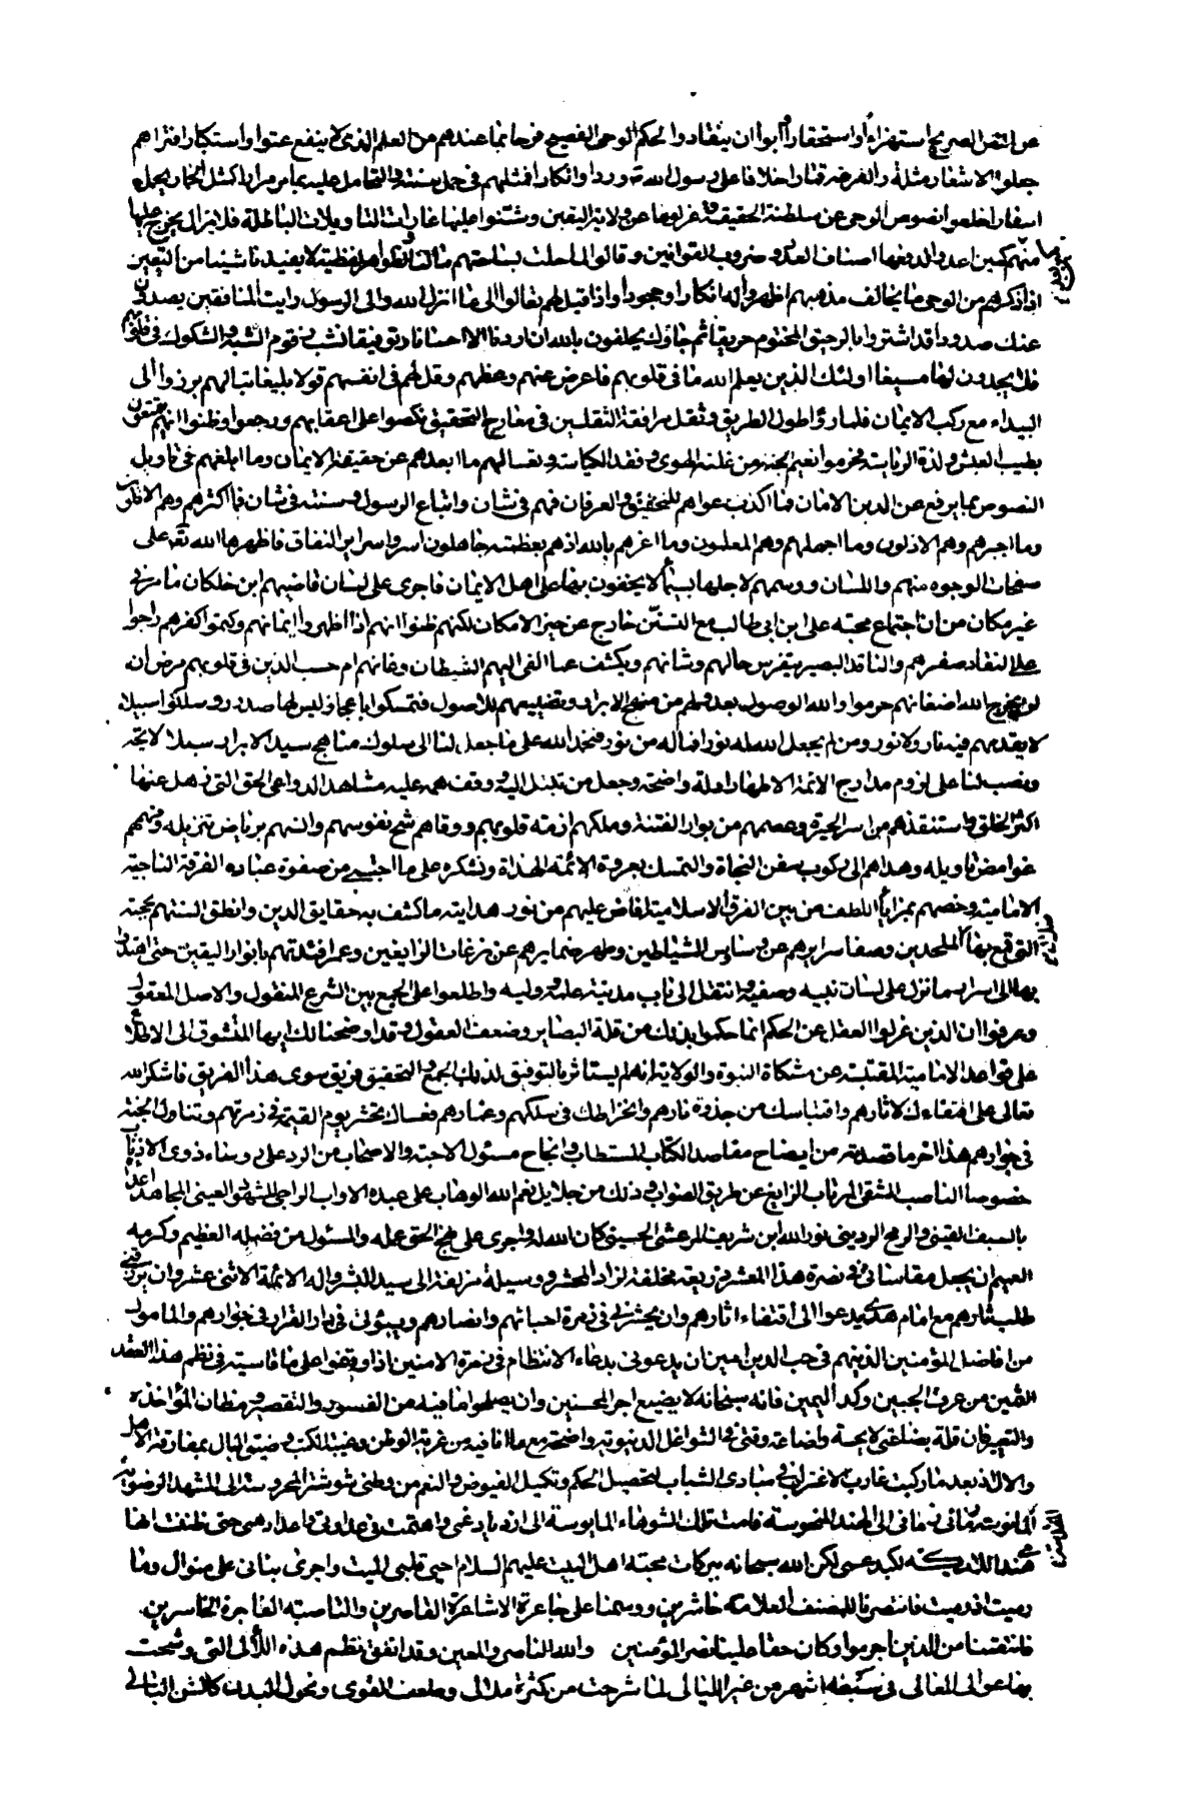 عن النص الصريح استهزاءً واستحقاراً وأبوا ان ينقادوا لحكم الوحى الفصيح فرحا بما عندهم من العلم الذى لا ينفع عتوا واستكبارا فتراهم
جعلوا الاسفار مثلة والفرض خلافا على رسول الله وردا وانكارا فمثلهم فى حمل سنته والتحامل عليه كمثل الحمار يحمل
اسفارا خلعوا نصوص الوحى عن سلطنة الحقيقة وعزلوها عن ولاية اليقين وشنوا عليها غارات التاويلات الباطلة فلا يزال يخرج عليها
منهم كمين اعدوا لدفعها اصناف العدد وضروب القوانين وقالوا لما حلت بساحتهم ظواهر لفظية لا يفيدنا شيئا من اليقين
اذا ذكر لهم من الوحى ما يخالف مذهبهم اظهروا له انكارا وجحودا واذا قيل لهم تعالوا الى ما انزل الله والى الرسول رايت المنافقين يصدون
عنك صدودا قد اشتروا بالرحيق المختوم حريقا ثم جاؤك يحلفون بالله ان اردنا الا احسانا وتوفيقا نشب زقوم الشبه والشكوك فى قلوبهم
فلا يجدون لها مسيغا اولئك الذين يعلم الله ما فى قلوبهم فاعرض عنهم وعظهم وقل لهم فى انفسهم قولا بليغا تبا لهم برزوا الى
البيداء مع ركب الايمان فلما راوا طول الطريق وثقل مرافقة الثقلين فى معارج التحقيق نكصوا على اعقابهم ورجعوا وظنوا انهم
بطيب العيش ولذة الرياسة فحرموا نعيم الجنة من غلبة الهوى وفقد الكياسة وتعسا لهم ما ابعدهم عن حقيقة الايمان وما ابلغهم فى تاويل
النصوص بما يرفع عن الدين الامان فما اكذب دعواهم للتحقيق والعرفان فهم فى شان واتباع الرسول وسنته فى شان فما اكثرهم وهم الاقلون
وما اجبرهم وهم الاذلون وما اجهلهم وهم المعلمون وما اغرهم بالله اذ هم بعظمته جاهلون اسروا سراير النفاق فاظهرها الله تعه على
صفحات الوجوه منهم واللسان ووسمهم لاجلها بسيما لا يخفون بها على اهل الايمان فاجرى على لسان قاضيهم ابن خلكان ما مر فى
غير مكان من ان اجتماع محبة على ابن ابى طالب مع التسنن خارج عن حيز الامكان لكنهم ظنوا انهم اذا اظهروا ايمانهم وكتموا كفرهم راجوا
على النقاد صفرهم والناقد البصير يتفرس حالهم وشانهم ويكشف عما القى اليهم الشيطان ام حسب الذين فى قلوبهم مرض ان
لن يخرج الله اضغانهم حرموا والله الوصول بعدولهم عن منهج الابرار وتضييعهم للاصول فتمسكوا باعجاز ليس لها صدور وسلكوا سبيلا
لا يقدمهم فيه نار ولا نور ومن لم يجعل الله له نورا فما له من نور فنحمد الله على ما جعل لنا الى سلوك مناهج سيد الابرار سبيلا
ونصب لنا على لزوم مدارج الائمة الاطهار ادلة واضحة وجعل من تبتل اليه ووقف همه عليه مشاهدا لدواعى الحق التى ذهل عنها
اكثر الخلق واستنقذهم من اسر الحيرة وعصمهم من بوار الفتنة وملكهم ازمة قلوبهم ووقاهم شح نفوسهم وانسهم برياض تنزيله وفهمهم
غوامض تاويله وهداهم الى ركوب سفن النجاة والتمسك بعروة الائمة الهداة ونشكره على ما اجتبى من صفوة عباده الفرقة الناجية
الامامية وخصهم بمزايا اللطف من بين الفرق الاسلامية افاض عليهم من نور هدايته ما كشف به حقايق الدين وانطق السنتهم بحجته
التى قمع بها الملحدين وصفا سرايرهم عن وساوس الشياطين وطهر ضمايرهم عن نزغات الزايغين وعمر افئدتهم بانوار اليقين حتى اهتدوا
بها الى اسرار ما نزل على لسان نبيه وصفيه وانتقل الى باب مدينة علمه ووليه واطلعوا على الجمع بين الشرع المنقول والاصل المعقول
وعرفوا ان الذين عزلوا العقل عن الحكم انما حكموا بذلك من قلة البصاير وضعف العقول وقد اوضحنا لك ايها المتشوق الى الاطلاع
على قواعد الامامية المقتبسة عن مشكاة النبوة والولاية انه لم يستاثر بالتوفيق لذلك الجمع والتحقيق فريق سوى هذا الفريق فاشكر الله
تعالى على اقتفاءك لاثارهم واقتباسك من جذوة نارهم وانخراطك فى سلكهم وغمارهم فعساك تحشر يوم القيمة فى زمرتهم وتتناول الجنة
فى جوارهم هذا اخر ما قصدته من ايضاح مقاصد الكتاب المستطاب وانجاح مسئول الاحبة والاصحاب من الرد على رؤساء ذوى الاذناب
خصوصا الناصب الشقى المرتاب الزايغ عن طريق الصواب وذلك من جلايل نعم الله الوهاب على عبده الاواب الراجى العينى المجاهد
بالسيف اليقينى والرمح الردينى نور الله ابن شريف المرعشى الحسينى كان الله له واجرى على نهج الحق عمله والمسئول من فضله العظيم وكرمه
العميم ان يجعل مقاساتى فى نصرة هذا المعشر ذريعة مخلفة لزاد المحشر ووسيلة مزلفة الى سيد البشر واله الائمة الاثنى عشر وان يرزقنى
طلب ثارهم مع امام هدى يدعوا الى اقتفاء اثارهم وان يحشرنى فى زمرة احبائهم وانصارهم ويبوئنى فى دار القرار فى جوارهم والمامول
من افاضل المؤمنين الذين هم فى حب الدين امين ان يدعونى بدعاء الانتظام فى زمرة الامنين اذا وقفوا على ما قاسيته فى نظم هذا العقد
الثمين من عرق الجبين وكد اليمين فانه سبحانه لا يضيع اجر المحسنين وان يصلحوا ما فيه من القصور والتقصير ومظان المؤاخذه
والتعيير فان قلة بضاعتى لايحة واضاعة وقتى فى الشواغل الدنيوية واضحة مع ما انا فيه من غربة الوطن وغيبة الكتب وضيق البال بمفارقة الاهل
والال اذ بعد ما ركبت غارب الاغتراب فى مبادى الشباب لتحصيل الحكم وتكميل الفيوض والنعم من وطنى شوشتر المحروسة الى المشهد الرضوية
زمانى الى الهند المنحوسة فامت تلك الشوهاء المايوسة الى ازدياد غمى واهتمت فى عداوتى واعداد همى حتى ظننت انها
هند اللائكة لكبد عمى لكن الله سبحانه ببركات محبة اهل البيت عليهم السلام احيى قلبى الميت واجرى بنانى على منوال وما
رميت اذ رميت فانتصرنا للمصنف العلامة خاشرين ووسمنا على جباعرة الاشاعرة القاصرين والناصبة الفاجرة الخاسرين
فانتقمنا من الذين اجرموا وكان حقا علينا نصر المؤمنين والله الناصر والمعين وقد اتفق نظم هذه اللآلى التى وشحت
بها عوالى المعالى فى سبعة اشهر من غير الليالى لما شرحت من كثرة ملالى وضعف القوى ونحول البدن كالشن البالى